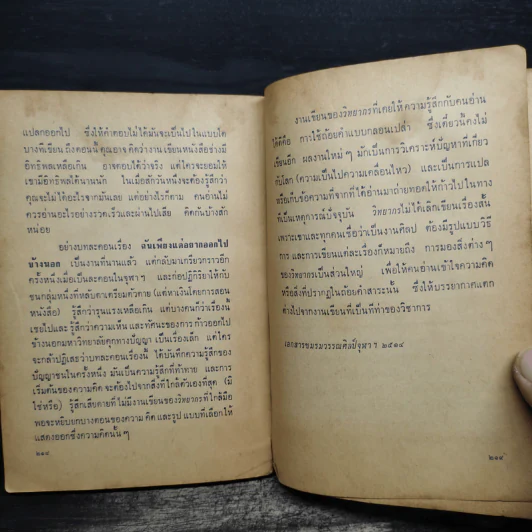 แปลกออกไป ซึ่งให้คำตอบไม่ได้มันจะเป็นไปในแบบใด
บางทีเขียนถึงตอนนี้ คุณอาจคิดว่างานเขียนหนังสือย่างมี
อิทธิพลเหลือเกิน อาจตอบได้ว่าจริง แต่ใครจะยอมให้
เขามีอิทธิพลได้นานนัก ในเมื่อสักวันหนึ่งจะต้องรู้สึกว่า
คุณจะไม่ได้อะไรจากมันเลย แต่อย่างไรก็ตาม คนอ่านไม่
ควรอ่านอะไรอย่างรวดเร็วและผ่านไปเสีย คิดกันบ้างสัก
หน่อย
อย่างบทละคอนเรื่อง ฉันเพียงแต่อยากออกไป
ข้างนอก เป็นงานที่นานแล้ว แต่กลับมาเกรียวกราวอีก
ครั้งหนึ่งเมื่อเป็นละคอนในจุฬาฯ และก่อปฏิกิริยาให้กับ
ชนกลุ่มหนึ่งที่หลับตาเตรียมตัวตาย (แต่หาเงินโดยการสอน
หนังสือ) รู้สึกว่ารุนแรงเหลือเกิน แต่บางคนก็ว่าเรื่องนี้
เชยไปและ รู้สึกว่าความเห็น และทัศนะของการ ก้าวออกไป
ข้างนอกมหาวิทยาลัยคุกทางปัญญา เป็นเรื่องเล็ก แต่ใคร
จะกล้าปฏิเสธว่าบทละคอนเรื่องนี้ ได้บันทึกความรู้สึกของ
ปัญญาชนในครั้งหนึ่ง มันเป็นความรู้สึกที่ท้าทาย และการ
เริ่มต้นของความคิด จะต้องไปจากสิ่งที่ใกล้ตัวเองที่สุด (มิ
ใช่หรือ) รู้สึกเสียดายที่ไม่มีงานเขียนของวิทยากรที่ใกล้มือ
พอจะหยิบยกบางตอนของความ คิด และรูป แบบที่เลือกให้
แสดงออกซึ่งความคิดนั้นๆ
๒๑๔
งานเขียนของวิทยากรที่เคยให้ความรู้สึกกับคนอ่าน
ได้ก็คือ การใช้ถ้อยคำแบบกลอนเปล่า ซึ่งเดี๋ยวนี้คงไม่
เขียนอีก ผลงานใหม่ๆ มักเป็นการวิเคราะห์ปัญหาที่เกี่ยว
กับโลก (ความเป็นไปความเคลื่อนไหว) และเป็นการแปล
หรือเก็บข้อความที่จากที่ได้อ่านมาถ่ายทอดให้ก้าวไปในทาง
ที่เป็นเหตุการณ์ปัจจุบัน วิทยากรไม่ได้เลิกเขียนเรื่องสั้น
เพราะเขาและทุกคนเชื่อว่าเป็นงานศิลป ต้องมีรูปแบบวิธี
การ และการเขียนแต่ละเรื่องก็หมายถึง การมองสิ่งต่างๆ
ของวิทยากรเป็นส่วนใหญ่ เพื่อให้คนอ่านเข้าใจความคิด
หรือสิ่งที่ปรากฏในถ้อยคำสาระนั้น ซึ่งให้บรรยากาศแตก
ต่างไปจากงานเขียนที่เป็นที่ท่าของวิชาการ
เอกสารชมรมวรรณศิลป์จุฬาฯ ๒๕๑๔
๒๑๙